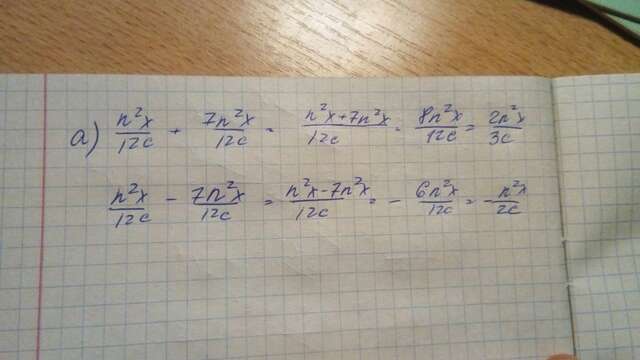 а) n²x/12c + 7n²x/12c = n²x+7n²x/12c = 8n²x/12c = 2n²x/3c
n²x/12c - 7n²x/12c = n²x-7n²x/12c = - 6n²x/12c = - n²x/2c